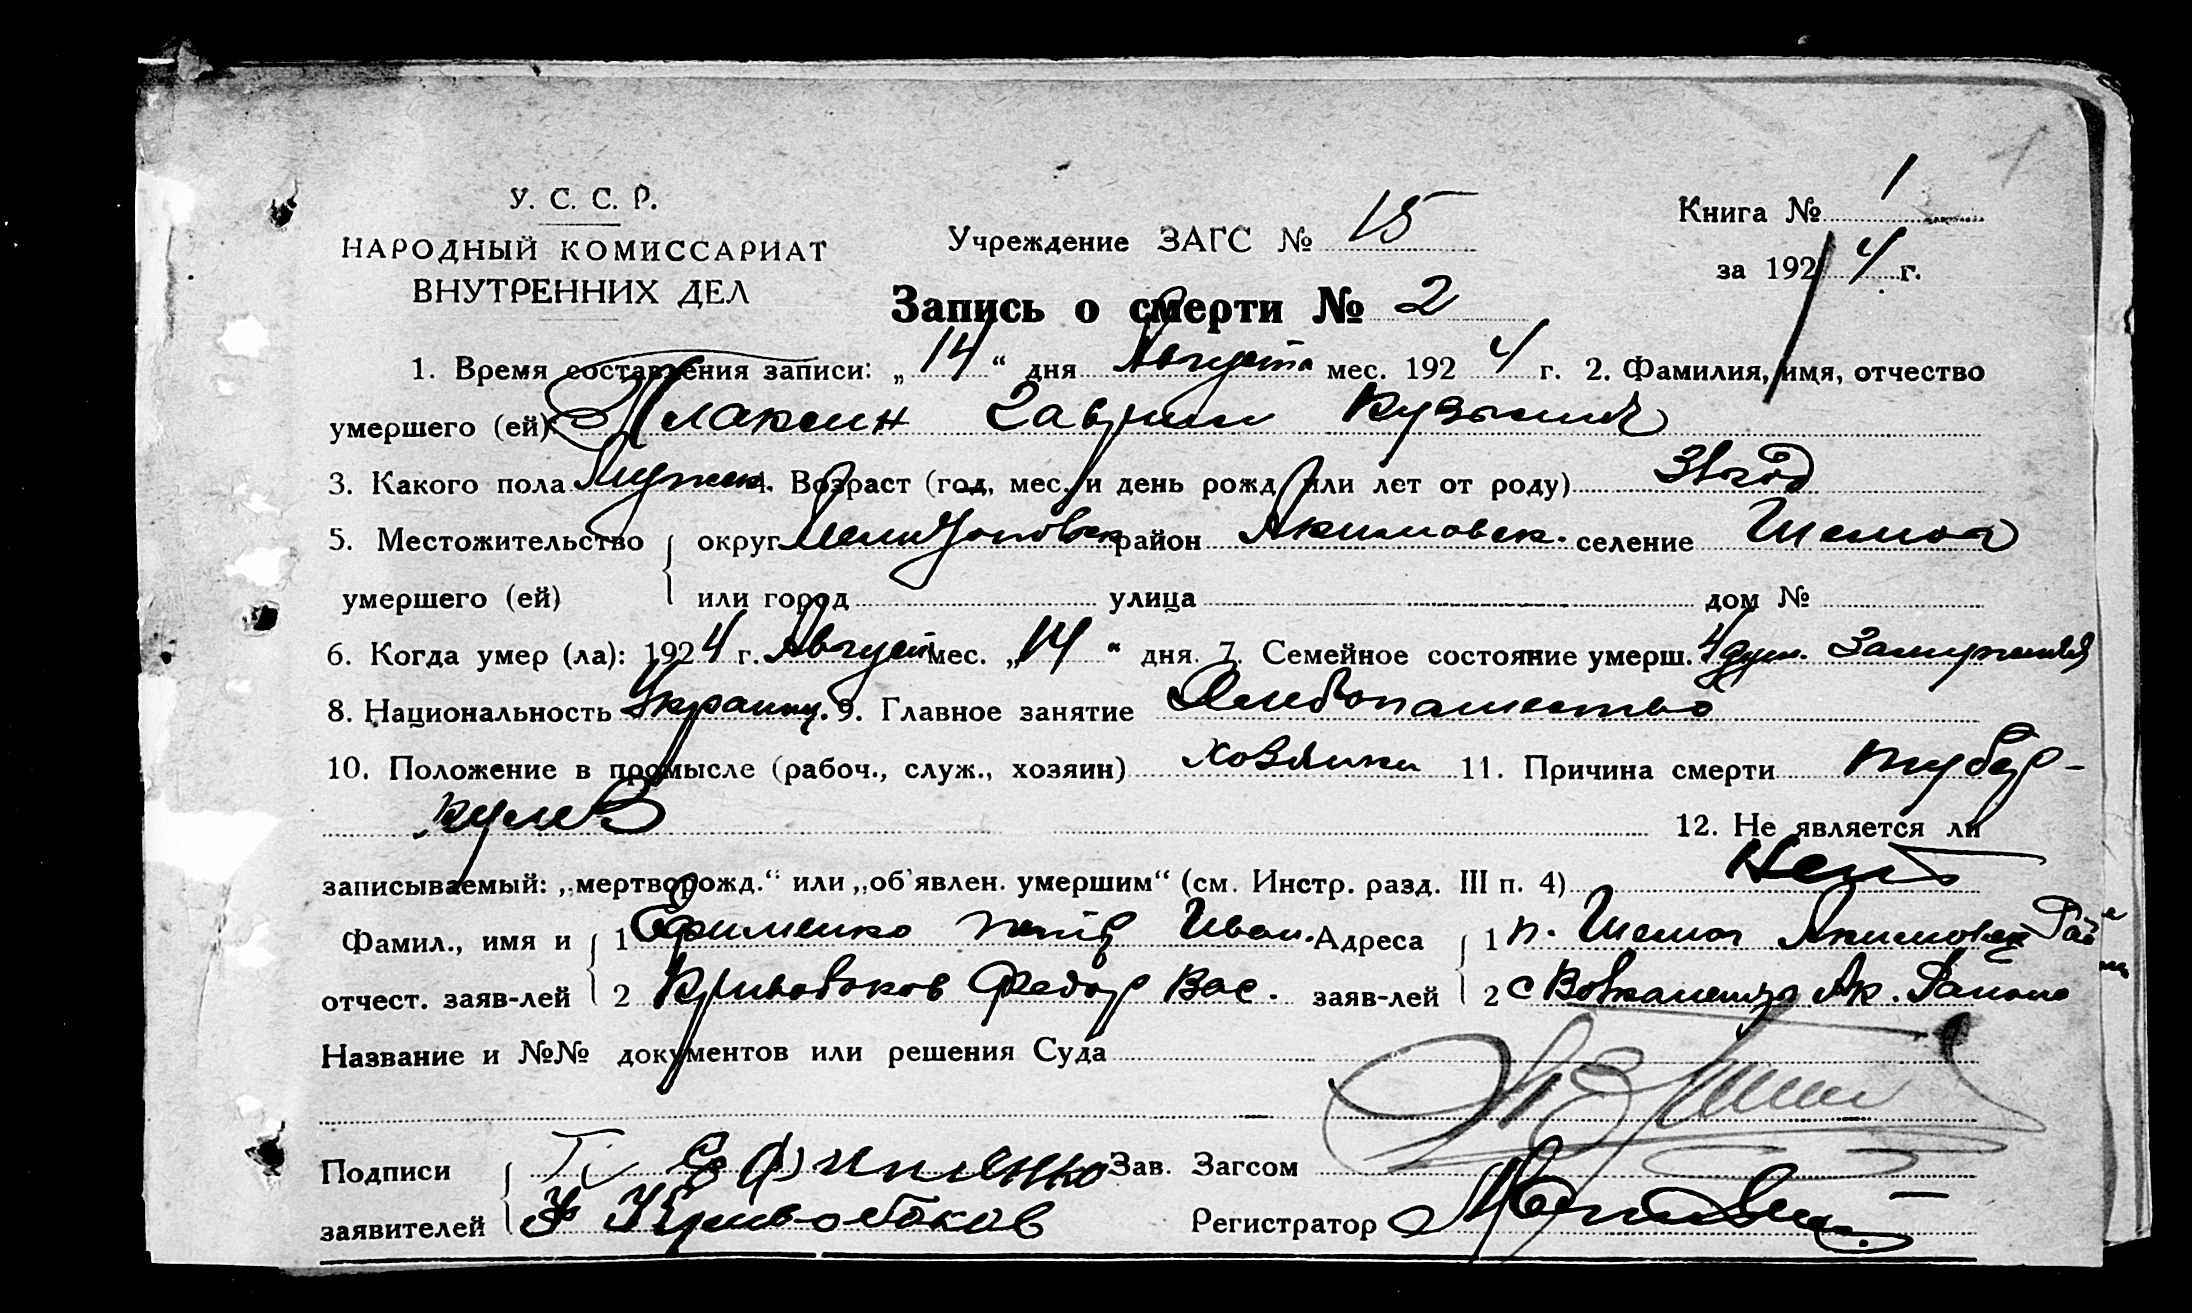 У. С. С. Р.
НАРОДНЫЙ КОМИССАРИАТ
ВНУТРЕННИХ ДЕЛ
Учреждение ЗАГС № 15
Книга № 1
за 1924 г.
Запись о смерти № 2
1. Время составления записи: „14“ дня Августа мес. 1924 г. 2. Фамилия, имя, отчество
умершего (ей) Плаксин Гаврил Кузьмич
3. Какого пола Мужск 4. Возраст (год, мес. и день рожд. или лет от роду) 31 год
5. Местожительство округ Мелитоповск район Акимовск. селение Шемот
умершего (ей) или город улица дом №
6. Когда умер (ла): 1924 г. Август мес. „14“ дня. 7. Семейное состояние умерш. 4 душ.
8. Национальность Украинц. 9. Главное занятие Хлебопашество
10. Положение в промысле (рабоч., служ., хозяин) хозяин 11. Причина смерти тубер-
кулез
12. Не является ли
записываемый: „мертворожд.“ или „об'явлен. умершим“ (см. Инстр. разд. III п. 4) Нет
Фамил., имя и 1 Ефименко Петр Иван. Адреса 1 п. Шемот Акимовск Рай
отчест. заяв-лей 2 Кривобоков Федор Вас. заяв-лей 2 с Ак. Района
Название и №№ документов или решения Суда
Подписи Ефименко Зав. Загсом
заявителей Кривобоков Регистратор